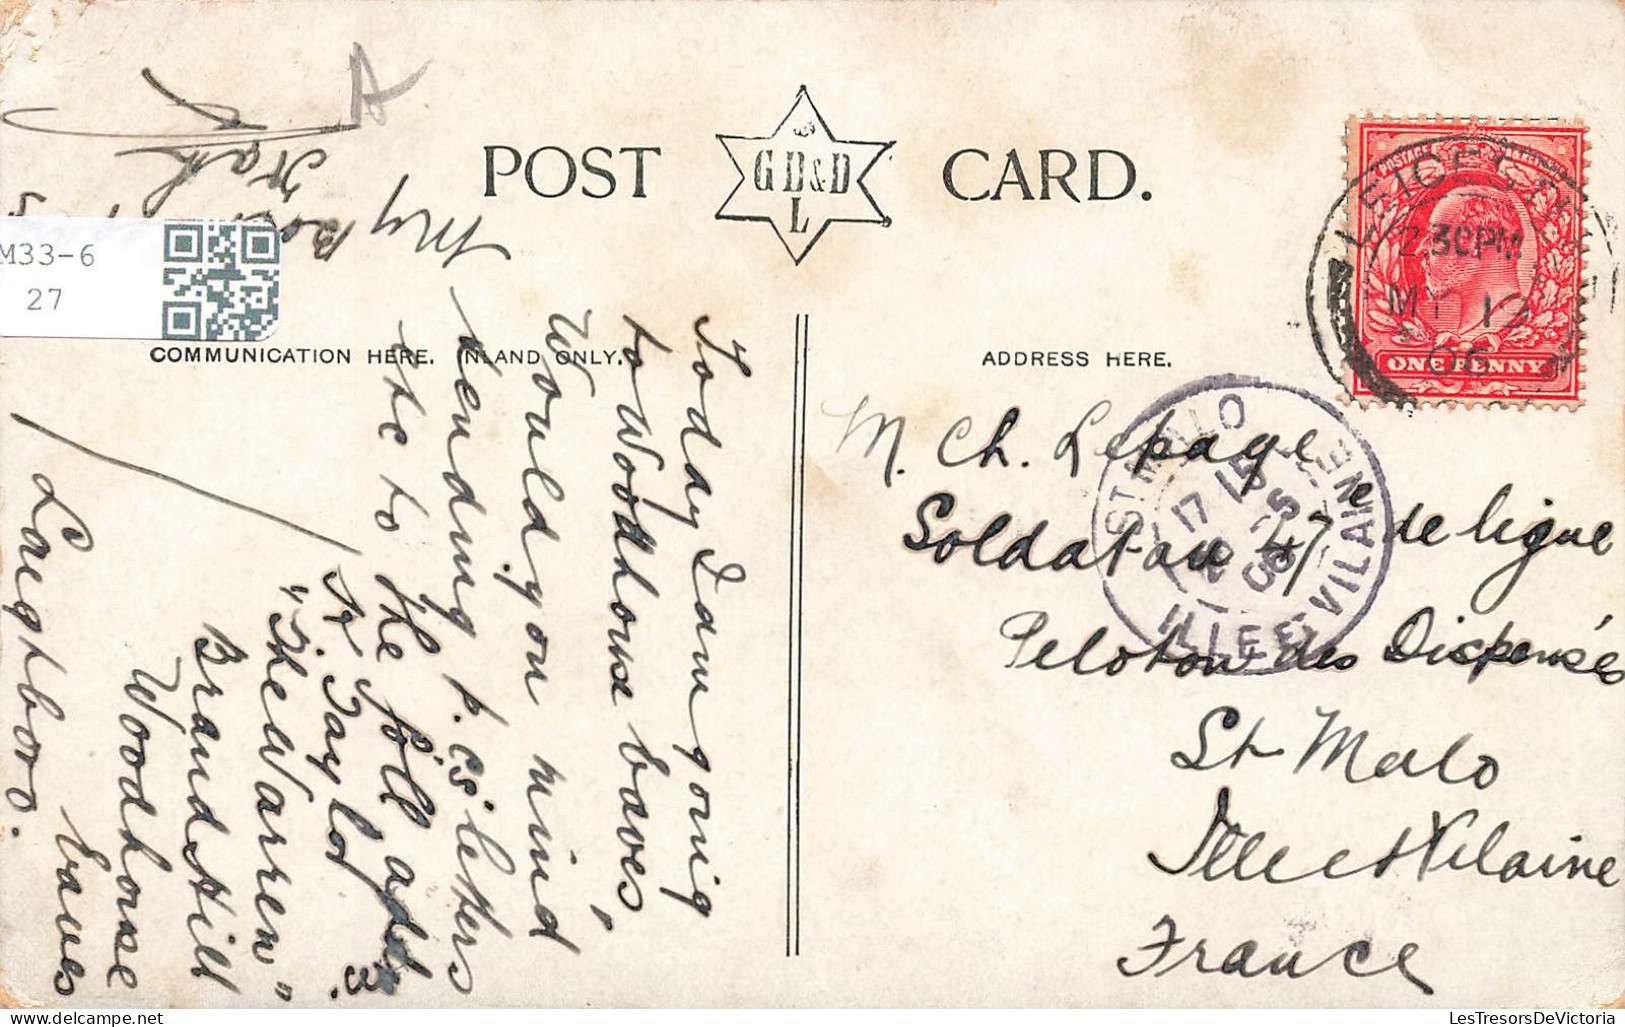 POST CARD.
GD&D
L
COMMUNICATION HERE. INLAND ONLY.
ADDRESS HERE.
M33-6
27
A
LEICESTER
2.30PM
MY 19
06
POSTAGE
ONE PENNY
ST MALO
17 15
06
ILLE ET VILAINE
M. Ch. Lepage
Soldat au 47e de ligne
Peloton des Dispensés
St Malo
Ille et Vilaine
France
My
Today I am going
to Woodhouse Eaves,
Would you mind
sending p.cs' letters
etc to the foll adds:
Taylor
"The Warren"
Brand Hill
Woodhouse
Eaves
Loughboro.
LesTresorsDeVictoria